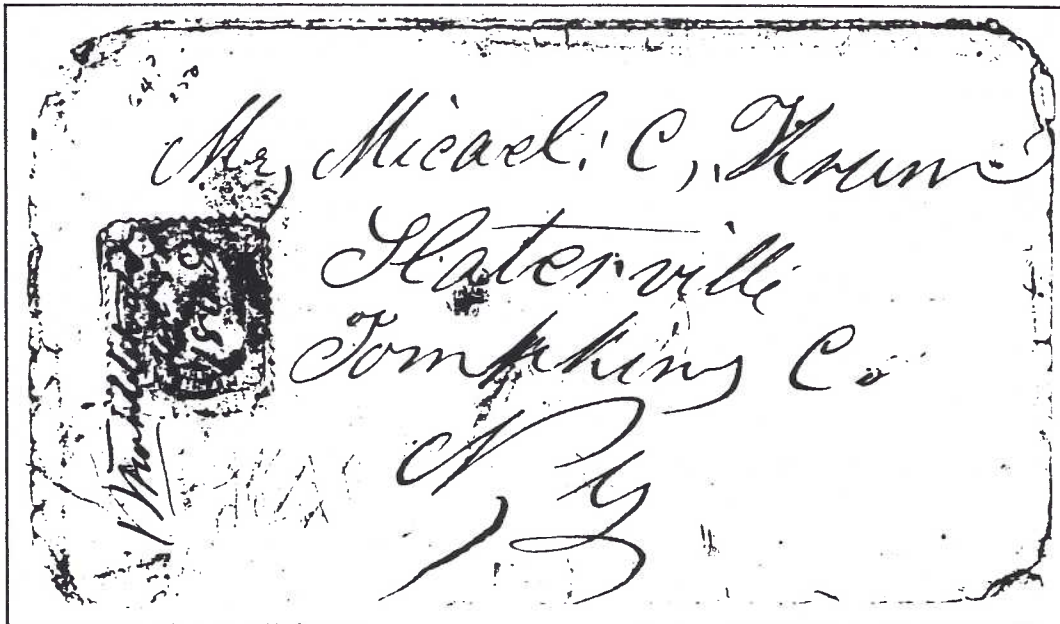 Mr, Micael. C, Krum
Slaterville
Tompkins C.
N, Y